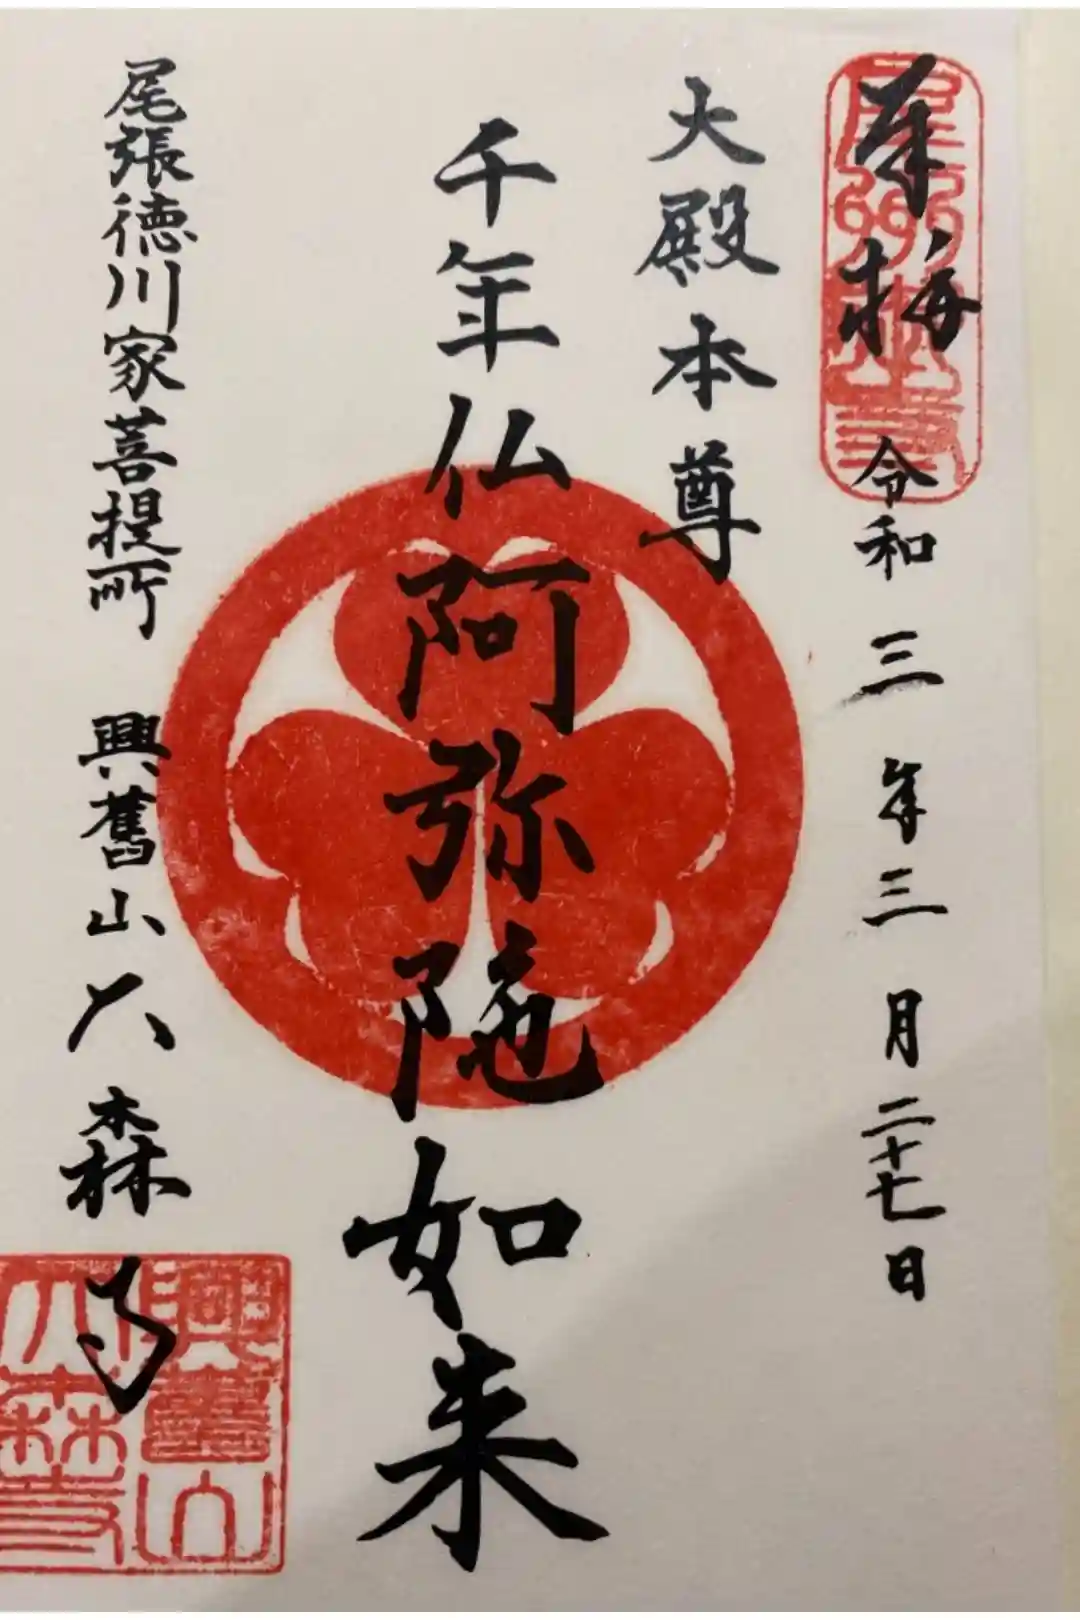 奉拝 令和三年三月二十七日
大殿本尊
千年仏阿弥陀如来
尾張徳川家菩提所 興舊山大森寺
興舊山
大森寺